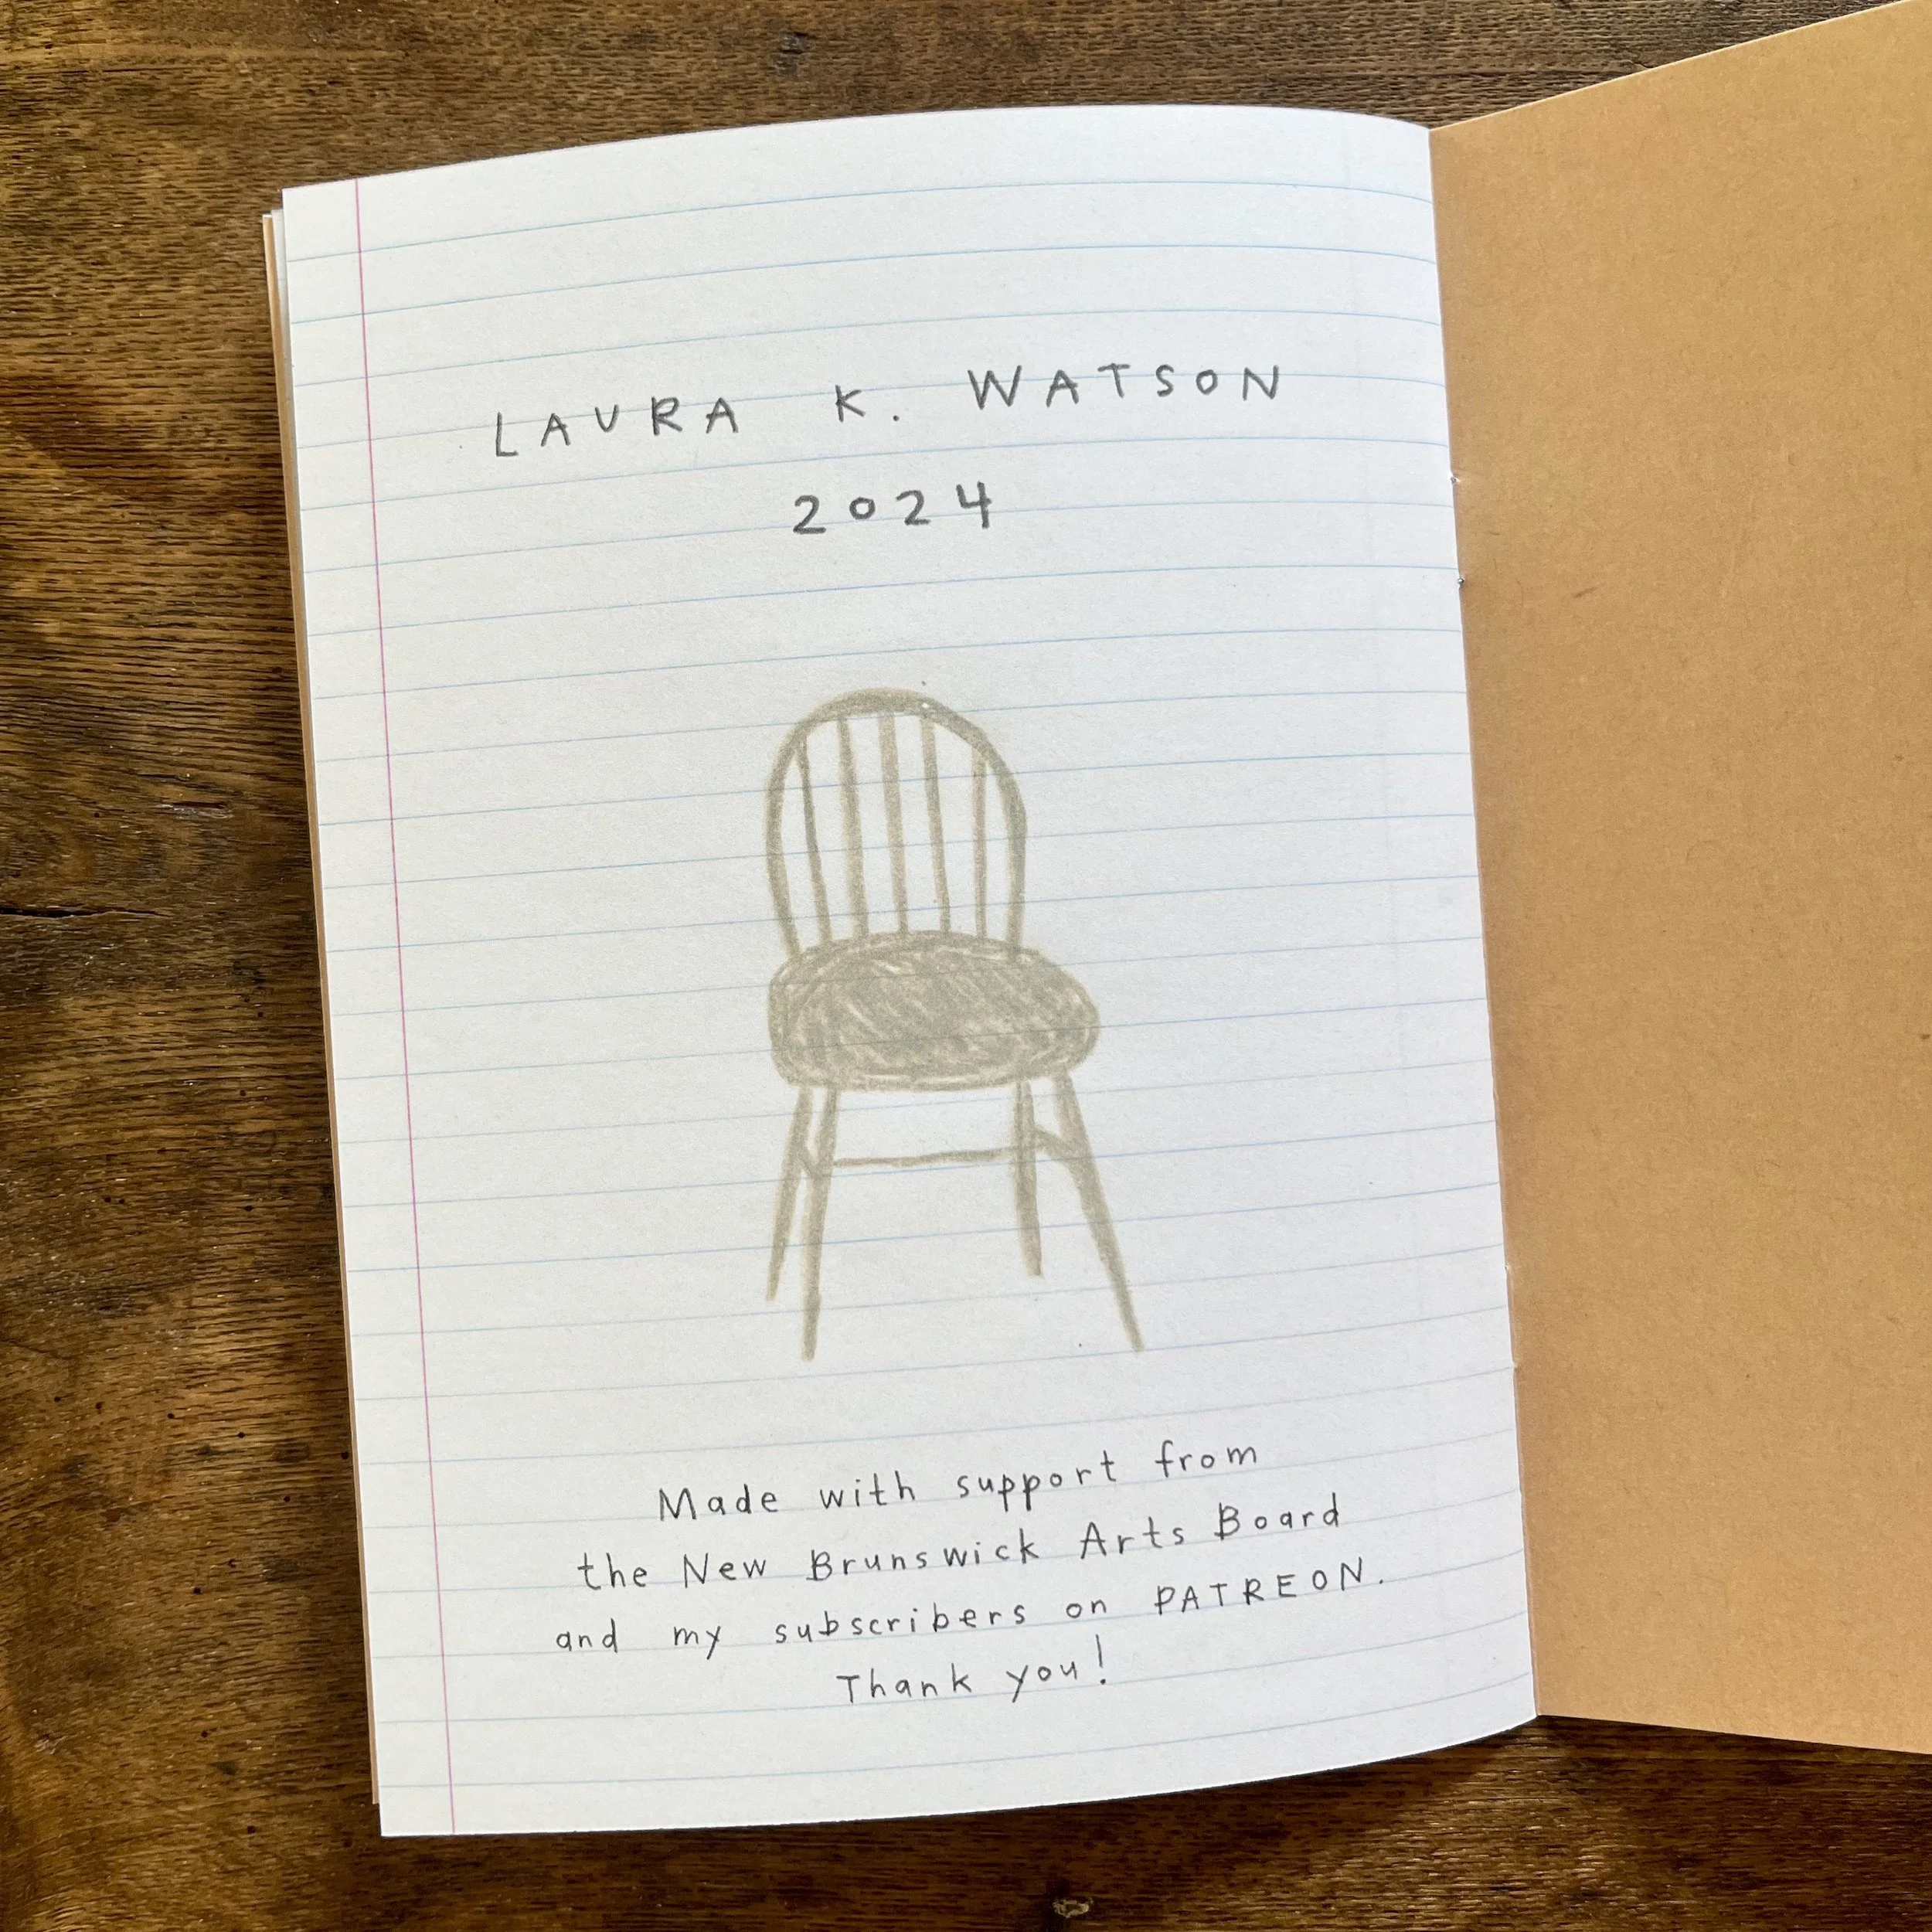 LAURA K. WATSON
2024
Made with support from
the New Brunswick Arts Board
and my subscribers on PATREON.
Thank you!